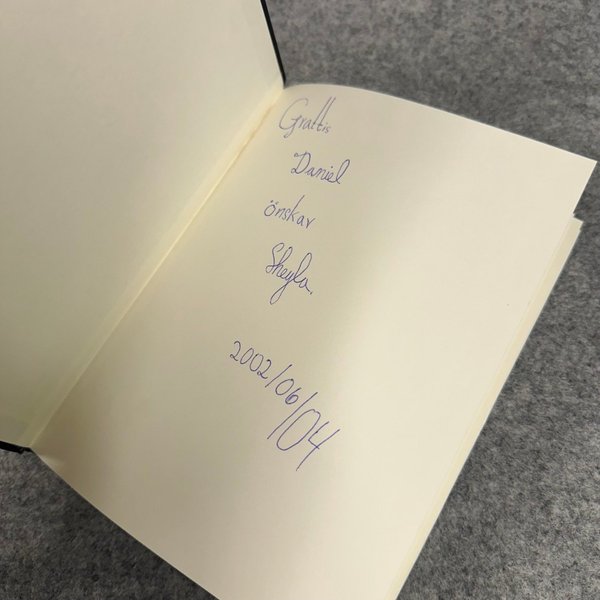 Grattis
Daniel
önskar
Sheyla.
2002/06/04